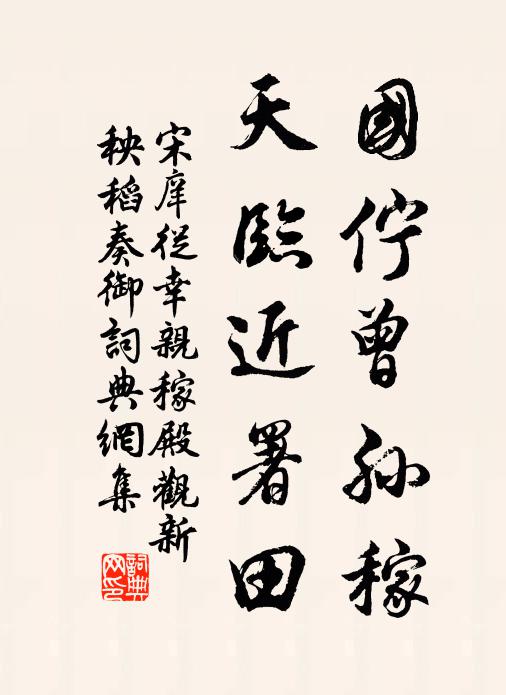 國佇曾孫稼
天臨近署田
宋庠從幸親稼殿觀新
秧稻奏御詞典網集
詞典
网印